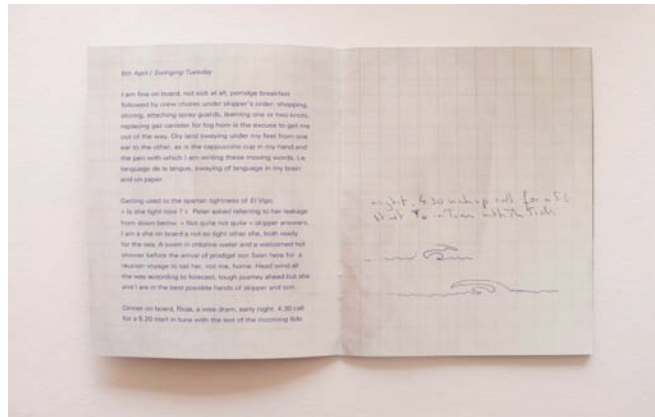 8th April / Swinging Tuesday
I am fine on board, not sick at all, porridge breakfast
followed by crew chores under skipper's order: shopping,
storing, attaching spray guards, learning one or two knots,
replacing gas canister for fog horn is the excuse to get me
out of the way. Dry land swaying under my feet from one
ear to the other, as is the cappuccino cup in my hand and
the pen with which I am writing these moving words. Le
language de la langue, swaying of language in my brain
and on paper.
Getting used to the spartan tightness of El Vigo.
« Is she tight now ? » Peter asked referring to her leakage
from down below. « Not quite not quite » skipper answers,
I am a she on board a not so tight other she, both ready
for the sea. A swim in chlorine water and a welcomed hot
shower before the arrival of prodigal son Sven here for a
reunion voyage to sail her, not me, home. Head wind all
the way according to forecast, tough journey ahead but she
and I are in the best possible hands of skipper and son.
Dinner on board, Rioja, a wee dram, early night. 4.30 call
for a 5.20 start in tune with the last of the incoming tide.
night. 4.30 wake up call for a 5
start in tune with the